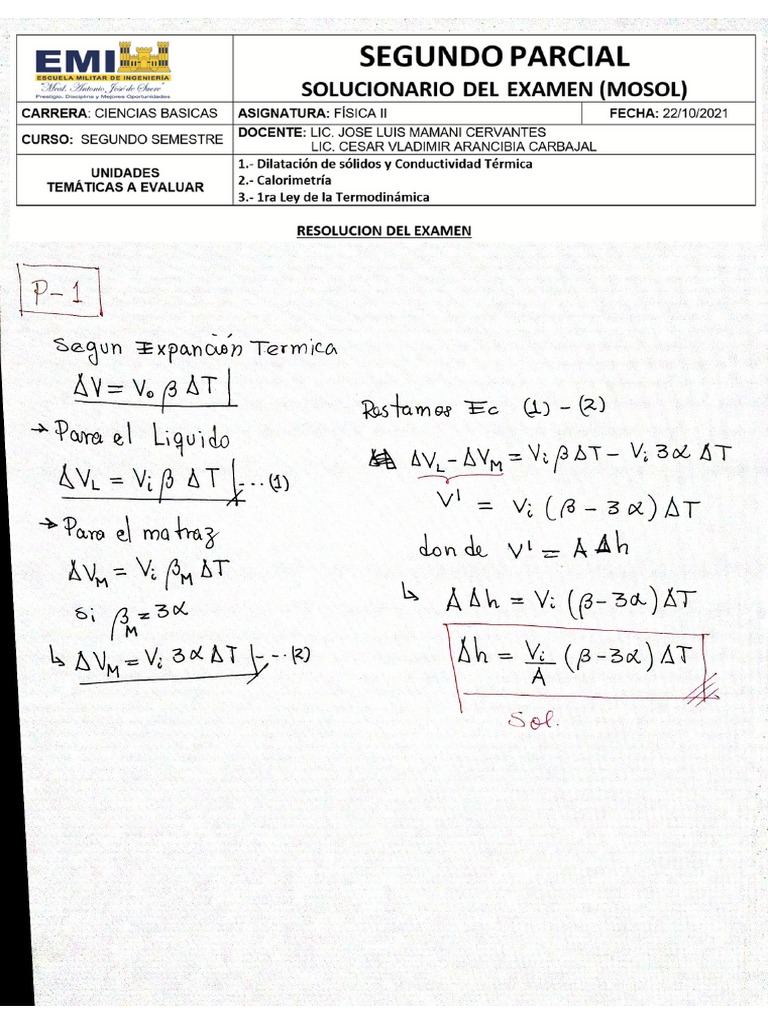 EMI
ESCUELA MILITAR DE INGENIERÍA
"Mcal. Antonio José de Sucre"
Prestigio, Disciplina y Mejores Oportunidades
SEGUNDO PARCIAL
SOLUCIONARIO DEL EXAMEN (MOSOL)
CARRERA: CIENCIAS BASICAS
ASIGNATURA: FÍSICA II
FECHA: 22/10/2021
CURSO: SEGUNDO SEMESTRE
DOCENTE: LIC. JOSE LUIS MAMANI CERVANTES
LIC. CESAR VLADIMIR ARANCIBIA CARBAJAL
UNIDADES
TEMÁTICAS A EVALUAR
1.- Dilatación de sólidos y Conductividad Térmica
2.- Calorimetría
3.- 1ra Ley de la Termodinámica
RESOLUCION DEL EXAMEN
P-1
Segun Expanción Termica
ΔV = V₀ β ΔT
→ Para el Liquido
ΔV_L = Vi β ΔT --- (1)
→ Para el matraz
ΔV_M = Vi β_M ΔT
Si β_M = 3α
↳ ΔV_M = Vi 3α ΔT --- (2)
Restamos Ec (1) - (2)
ΔV_L - ΔV_M = Vi β ΔT - Vi 3α ΔT
V' = Vi (β - 3α) ΔT
donde V' = A Δh
↳ A Δh = Vi (β - 3α) ΔT
Δh = Vi/A (β - 3α) ΔT
Sol.